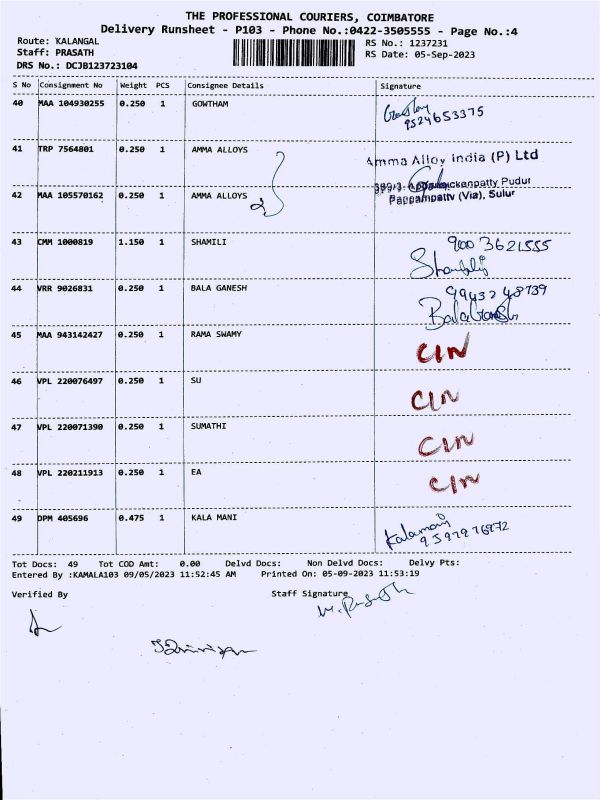 THE PROFESSIONAL COURIERS, COIMBATORE
Delivery Runsheet - P103 - Phone No.:0422-3505555 - Page No.:4
Route: KALANGAL RS No.: 1237231
Staff: PRASATH RS Date: 05-Sep-2023
DRS No.: DCJB123723104
S No Consignment No Weight PCS Consignee Details Signature
40 MAA 104930255 0.250 1 GOWTHAM
9524653375
41 TRP 7564801 0.250 1 AMMA ALLOYS Amma Alloy India (P) Ltd
Pudur
42 MAA 105570162 0.250 1 AMMA ALLOYS Pappampatty (Via), Sulur
2
43 CMM 1000819 1.150 1 SHAMILI 900 3621555
44 VRR 9026831 0.250 1 BALA GANESH 99432 48739
BalaGanesh
45 MAA 943142427 0.250 1 RAMA SWAMY CIN
46 VPL 220076497 0.250 1 SU CIN
47 VPL 220071390 0.250 1 SUMATHI CIN
48 VPL 220211913 0.250 1 EA CIN
49 DPM 405696 0.475 1 KALA MANI Kalamani
Tot Docs: 49 Tot COD Amt: 0.00 Delvd Docs: Non Delvd Docs: Delvy Pts:
Entered By :KAMALA103 09/05/2023 11:52:45 AM Printed On: 05-09-2023 11:53:19
Verified By Staff Signature
M. Prasath